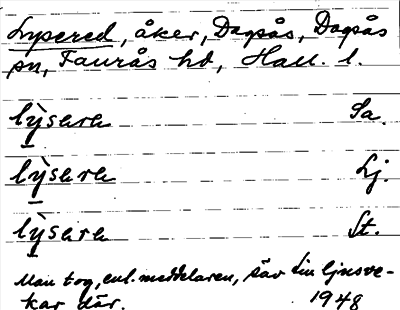 Lysered, åker, Dagsås, Dagsås
sn, Faurås hd, Hall. l.
lýsara Sa.
lýsara Lj.
lýsara St.
Man tog, enl. meddelaren, säv till ljusve-
kar där. 1948